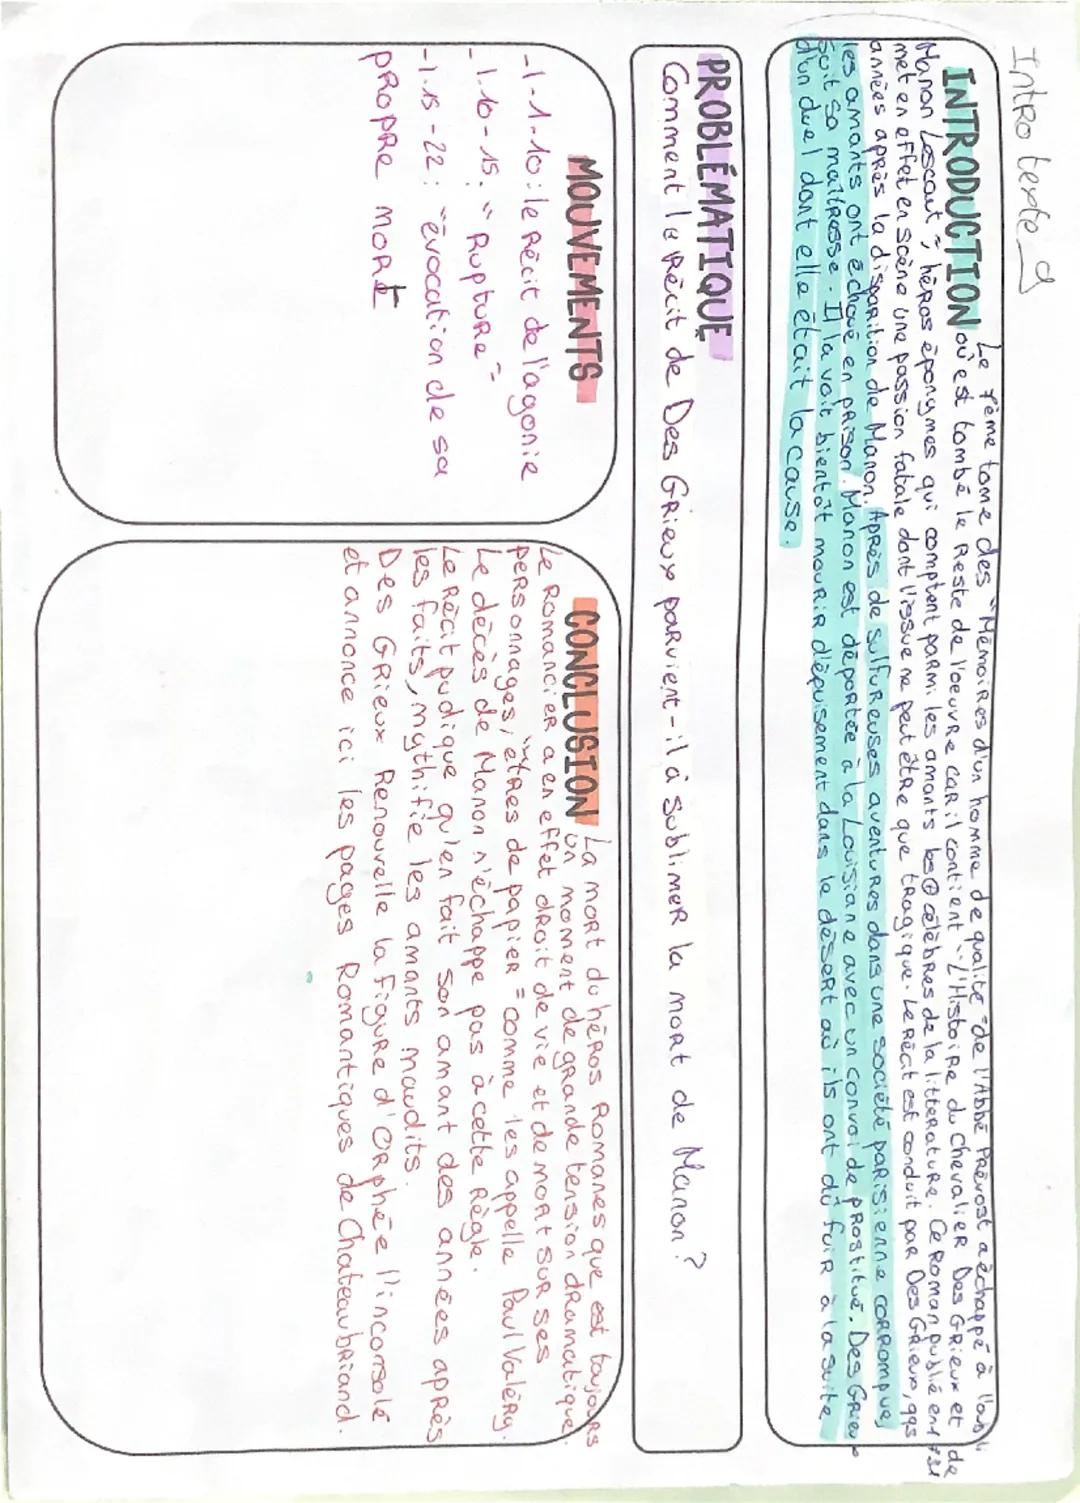 Intro texte 9
INTRODUCTION
Le 7ème tome des "Mémoires d'un homme de qualité" de l'Abbé Prévost a échappé à l'oubli
où est tombé le reste de l'oeuvre car il contient "L'Histoire du chevalier Des Grieux et de
Manon Lescaut", héros éponymes qui comptent parmi les amants les ⊕ célèbres de la littérature. Ce roman publié en 1731
met en effet en scène une passion fatale dont l'issue ne peut être que tragique. Le récit est conduit par Des Grieux, qqs
années après la disparition de Manon. Après de sulfureuses aventures dans une société parisienne corrompue,
les amants ont échoué en prison. Manon est déportée à la Louisiane avec un convoi de prostitué. Des Grieux
suit sa maîtresse. Il la voit bientôt mourir d'épuisement dans le désert où ils ont dû fuir à la suite
d'un duel dont elle était la cause.
PROBLÉMATIQUE
Comment le récit de Des Grieux parvient-il à sublimer la mort de Manon?
MOUVEMENTS
-l-1-10: le récit de l'agonie
-l.10-15: "Rupture"
-l.15-22: "évocation de sa
propre mort
CONCLUSION
La mort du héros Romanesque est toujours
un moment de grande tension dramatique.
Le romancier a en effet droit de vie et de mort sur ses
personnages, "êtres de papier" comme les appelle Paul Valéry.
Le décès de Manon n'échappe pas à cette règle.
Le récit pudique qu'en fait son amant des années après
les faits, mythifie les amants maudits.
Des Grieux renouvelle la figure d'Orphée l'inconsolé
et annonce ici les pages Romantiques de Chateaubriand.